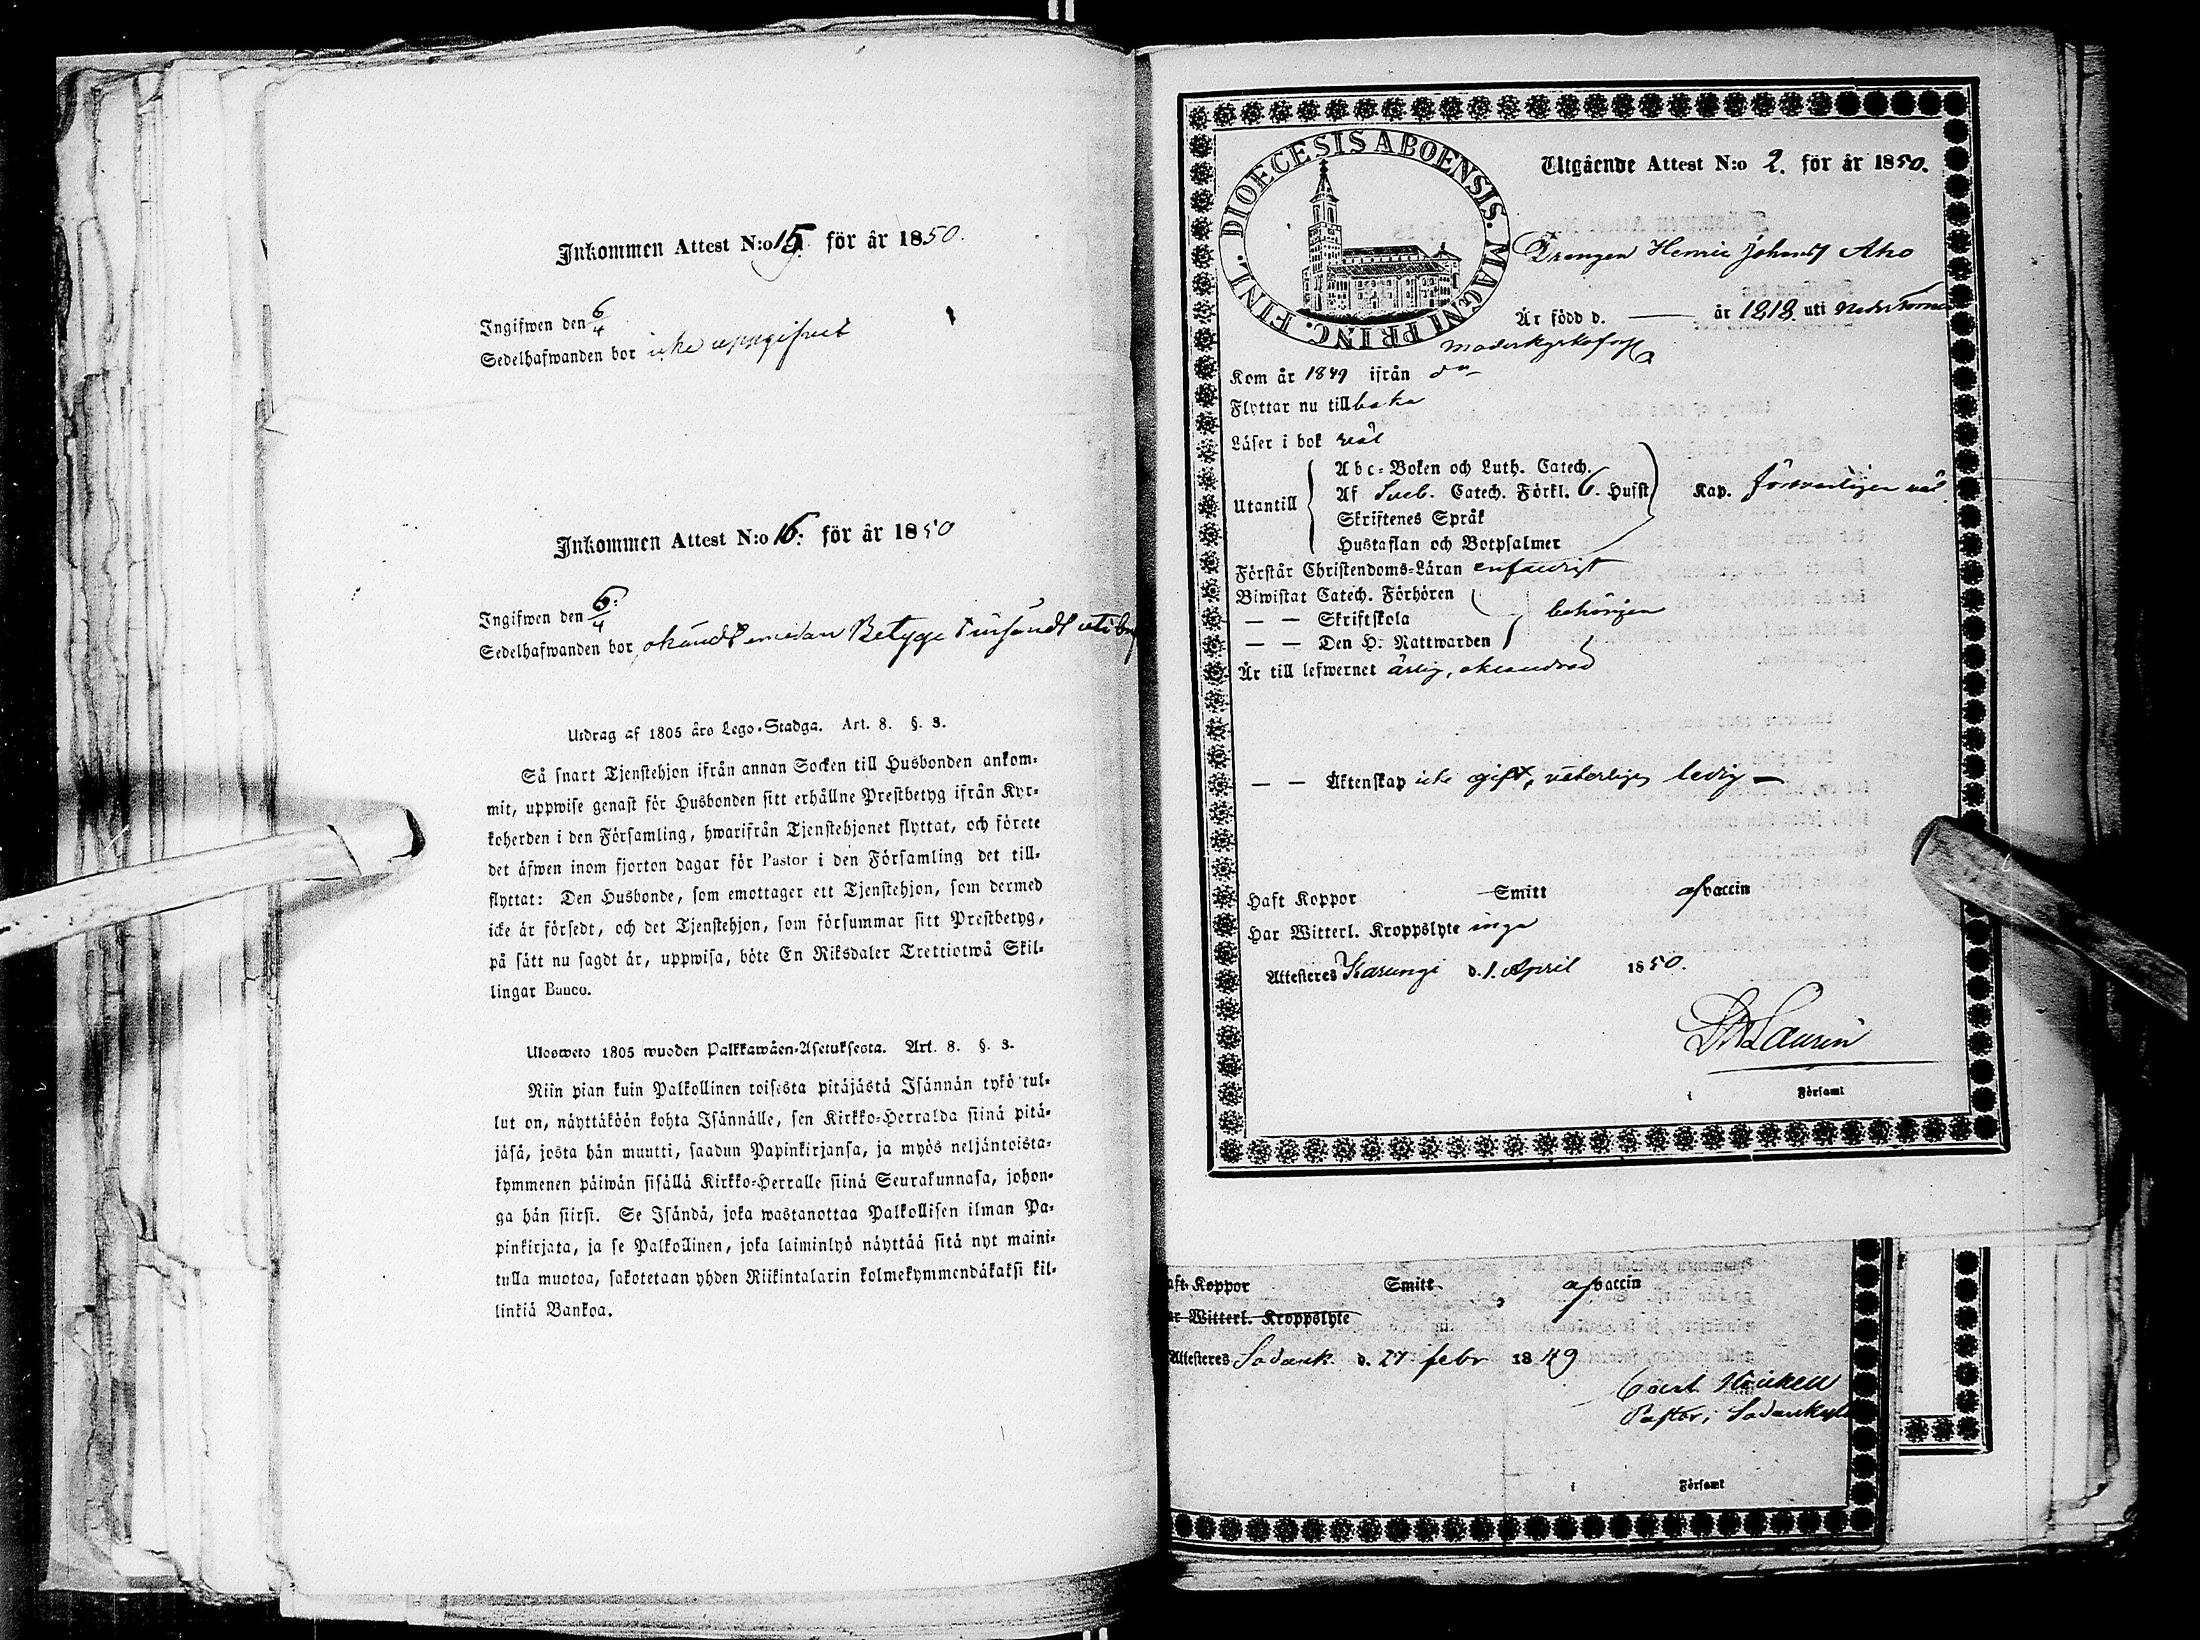 Inkommen Attest N:o 15. för år 1850.
Ingifwen den 6/4
Sedelhafwanden bor icke uppgifvet
Inkommen Attest N:o 16: för år 1850
Ingifwen den 6/4
Sedelhafwanden bor okändt emedan Betyget insändt
Utdrag af 1805 års Lego-Stadga. Art. 8. §. 3.
Så snart Tjenstehjon ifrån annan Socken till Husbonden ankom-
mit, uppwise genast för Husbonden sitt erhållne Prestbetyg ifrån Kyr-
koherden i den Församling, hwarifrån Tjenstehjonet flyttat, och förete
det äfwen inom fjorton dagar för Pastor i den Församling det till-
flyttat: Den Husbonde, som emottager ett Tjenstehjon, som dermed
icke är försedt, och det Tjenstehjon, som försummar sitt Prestbetyg,
på sätt nu sagdt är, uppwisa, böte En Riksdaler Trettiotwå Skil-
lingar Banco.
Ulosweto 1805 wuoden Palkkawäen-Asetuksesta. Art. 8. §. 3.
Niin pian kuin Palkollinen toisesta pitäjästä Isännän tykö tul-
lut on, näyttäköön kohta Isännälle, sen Kirkko-Herralda siinä pitä-
jäsä, josta hän muutti, saadun Papinkirjansa, ja myös neljäntoista-
kymmenen päiwän sisällä Kirkko-Herralle siinä Seurakunnasa, johon-
ga hän siirsi. Se Isändä, joka wastanottaa Palkollisen ilman Pa-
pinkirjata, ja se Palkollinen, joka laiminlyö näyttää sitä nyt maini-
tulla muotoa, sakotetaan yhden Riikintalarin kolmekymmendäkaksi kil-
linkiä Bankoa.
DIOECESIS ABOENSIS. MAGNI PRINC. FINL.
Utgående Attest N:o 2. för år 1850.
Drengen Henric Aho
Är född d. — år 1818 uti
Kom år 1849 ifrån do
Flyttar nu tillbaka
Läser i bok väl
Utantill
Abc-Boken och Luth. Catech.
Af Sveb. Catech. Förkl. 6. Hufst Kap. försvarligen väl.
Skriftenes Språk
Hustaflan och Botpsalmer
Förstår Christendoms-Läran enfaldigt
Biwistat Catech. Förhören
— — Skriftskola behörigen
— — Den H. Nattwarden
Är till lefwernet ärlig, oklandrad
— — Äktenskap icke gift, veterligen ledig —
Haft Koppor Smitt af vaccin
Har Witterl. Kroppslyte inga
Attesteres Karungi d. 1. April 1850.
Laurin
i Församl
aft Koppor Smitt af vaccin
ar Witterl. Kroppslyte
Attesteres Sodank. d. 27 febr 1849
Pastor i Sodankyl
i Församl